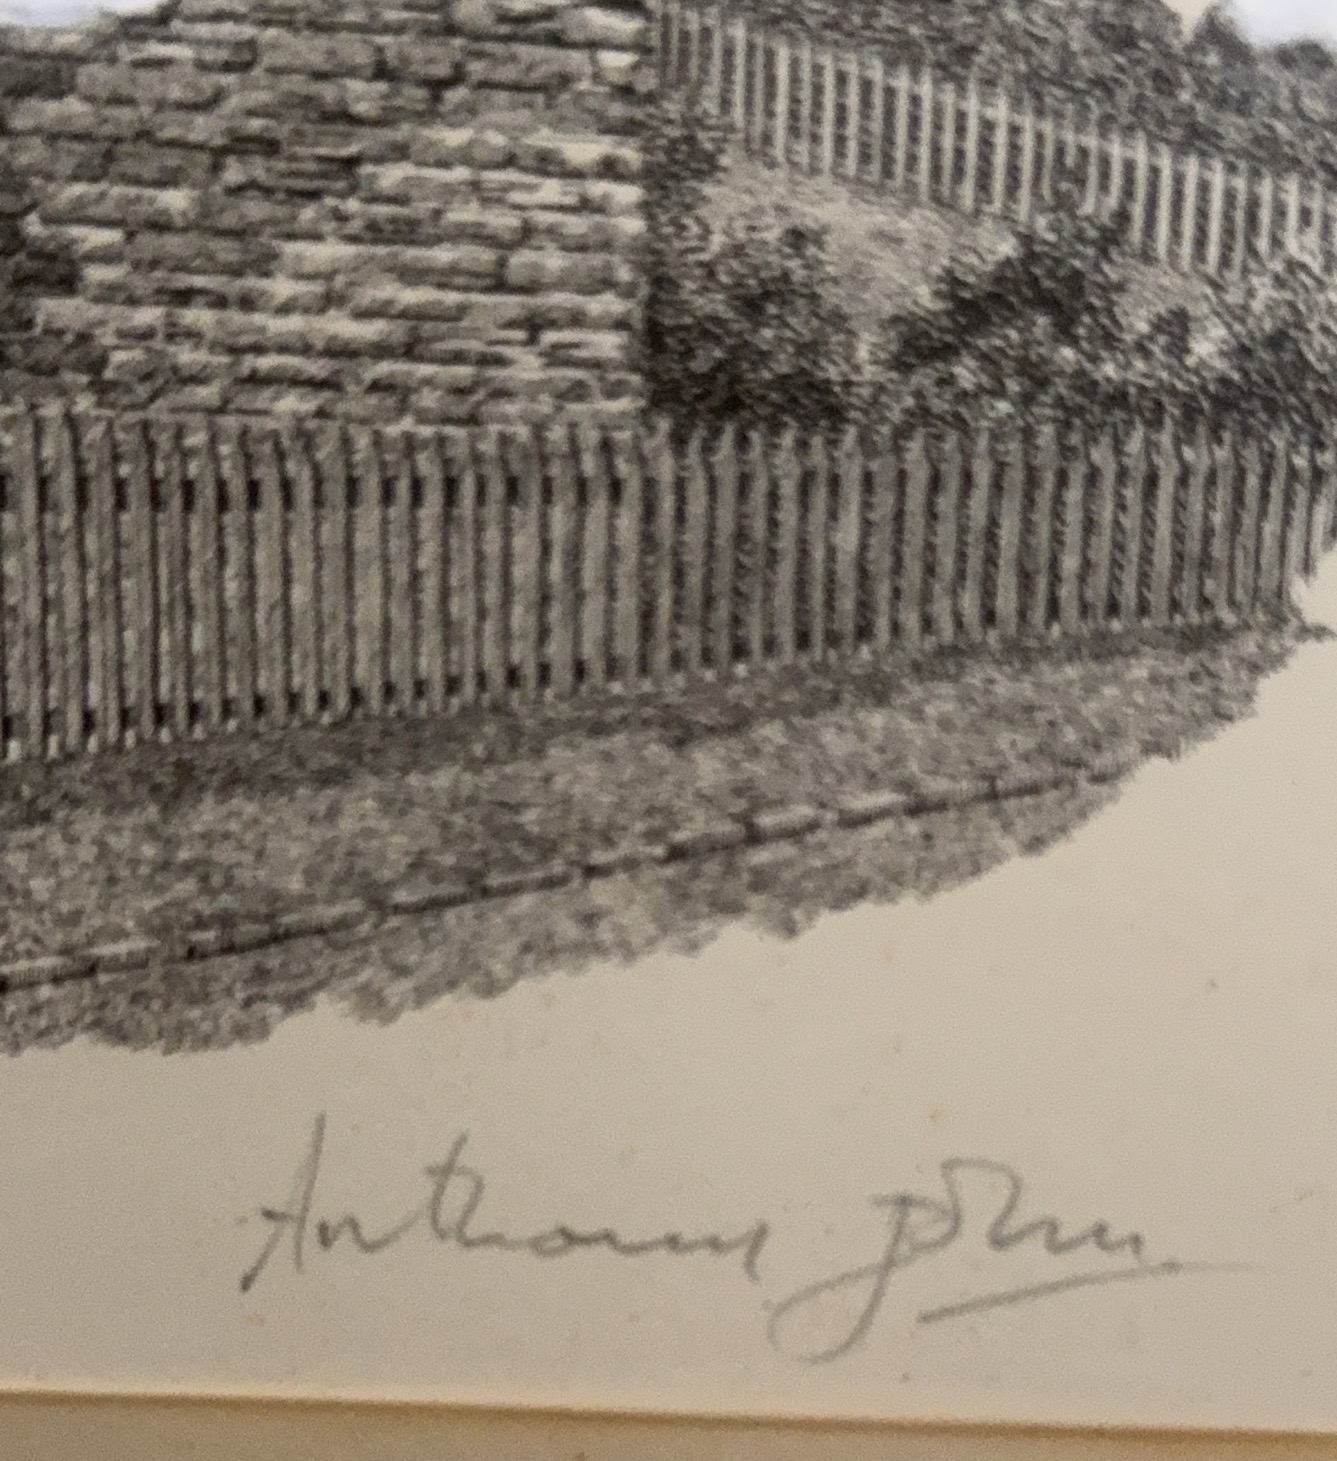 Anthony John